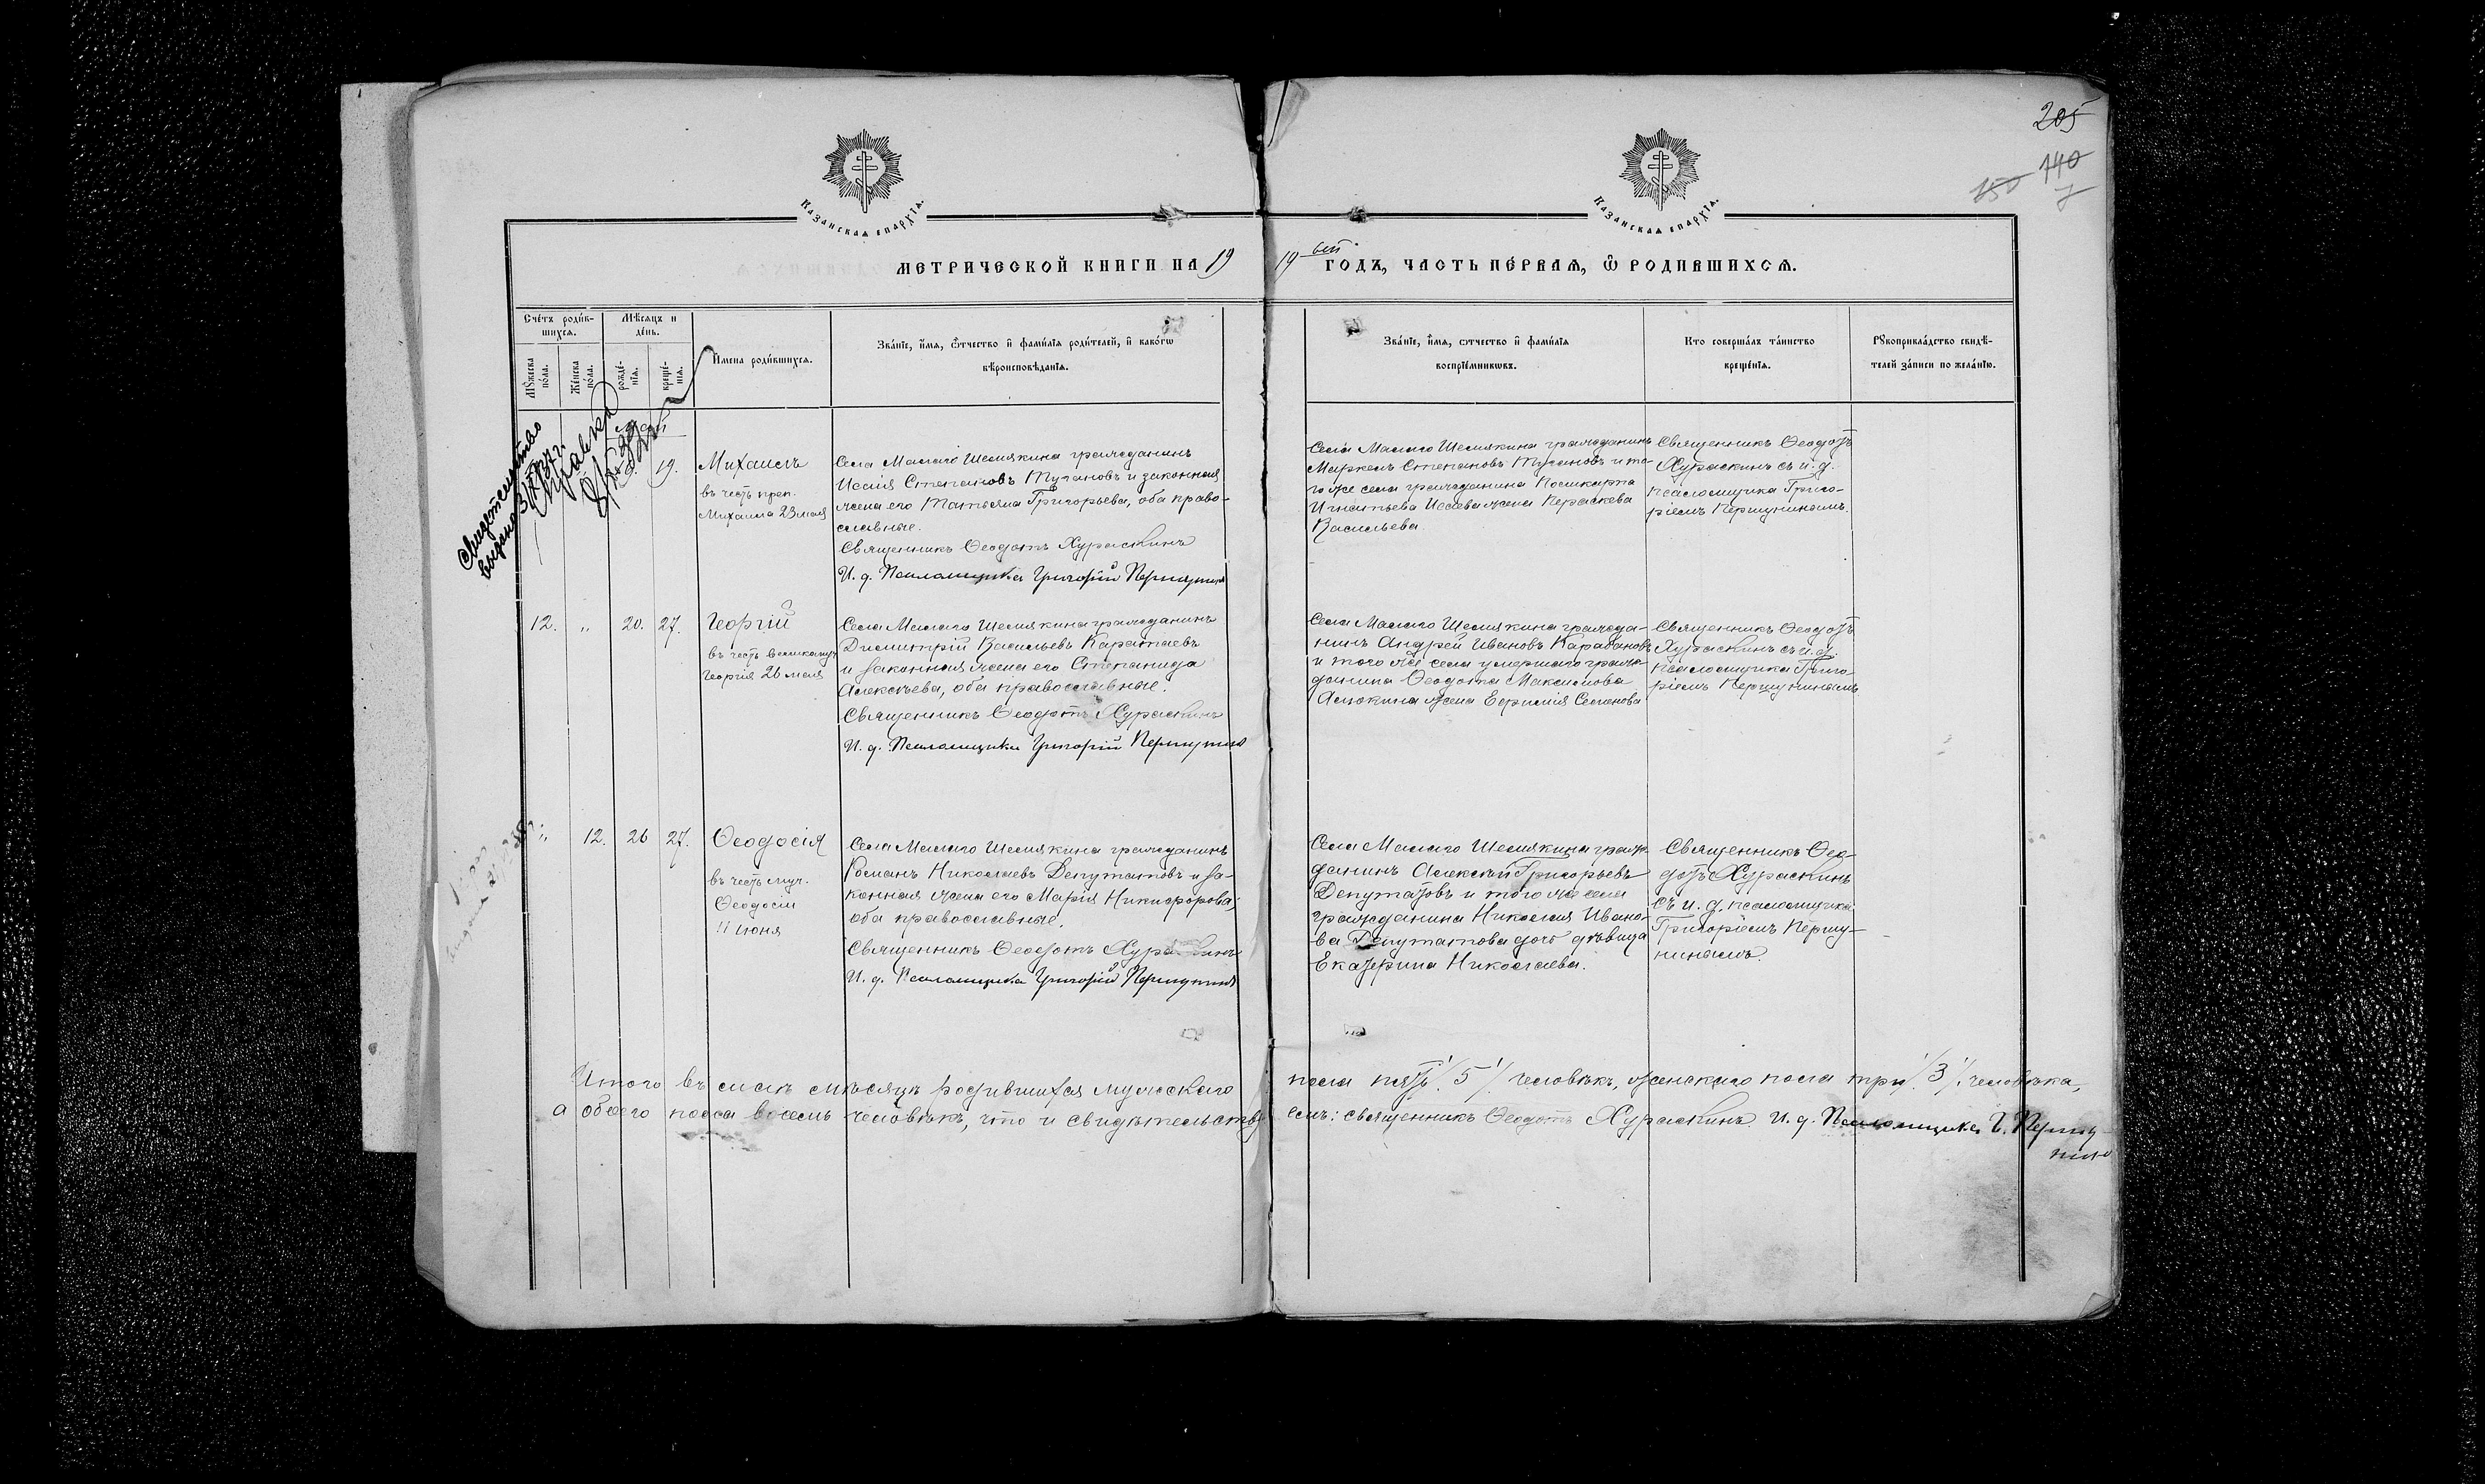 205
140
150
7
Казанская епархїѧ.
Казанская епархїѧ.
МЕТРИЧЕСКОЙ КНИГИ НА 19
19 ый ГОДЪ, ЧАСТЬ ПЕ́РВАѦ, Ѿ РОДИВШИХСѦ.
Сче́тъ роди́вшихсѧ.
Мѣ́сѧцъ и де́нь.
Мꙋ́жеска по́ла.
Же́нска по́ла.
рожде́нїѧ.
креще́нїѧ.
И́мена роди́вшихсѧ.
Зва́нїе, и́мѧ, ѻ́тчество и҆ фами́лїѧ роди́телей, и҆ како́гѡ
вѣроисповѣ́данїѧ.
Зва́нїе, и́мѧ, ѻтчество и҆ фами́лїѧ
воспрїе́мникѡвъ.
Кто соверша́лъ та́инство
креще́нїѧ.
Рꙋкоприкла́дство свидѣ́-
телей за́писи по жела́нїю.
Свидетельство
выдано
19.
Михаилъ
въ честь преп.
Михаила 23 мая
Села Малаго Шемякина гражданинъ
Исаія Степановъ Тугановъ и законная
жена его Татьяна Григорьева, оба право-
славные.
Священникъ Ѳеодотъ Хураскинъ
И. д. Псаломщика Григорій Першунинъ
Села Малаго Шемякина гражданинъ
Маркелъ Степановъ Тугановъ и то-
го же села гражданина Поликарпа
Игнатьева Исаева жена Параскева
Васильева.
Священникъ Ѳеодотъ
Хураскинъ съ и. д.
псаломщика Григо-
ріемъ Першунинымъ.
12. " 20. 27.
Георгій
въ честь великомуч.
Георгія 26 мая
Села Малаго Шемякина гражданинъ
Димитрій Васильевъ Каратаевъ
и законная жена его Степанида
Алексѣева, оба православные.
Священникъ Ѳеодотъ Хураскинъ
И. д. Псаломщика Григорій Першунинъ
Села Малаго Шемякина гражда-
нинъ Андрей Ивановъ Карабановъ
и того же села умершаго граж-
данина Ѳеодота Максимова
Алюкина жена Евфимія Семенова
Священникъ Ѳеодотъ
Хураскинъ съ и. д.
псаломщика Григо-
ріемъ Першунинымъ
" 12. 26 27.
Ѳеодосія
въ честь муч.
Ѳеодосіи
11 июня
Села Малаго Шемякина гражданинъ
Романъ Николаевъ Депутатовъ и за-
конная жена его Марія Никифорова,
оба православные.
Священникъ Ѳеодотъ Хураскинъ
И. д. Псаломщика Григорій Першунинъ
Села Малаго Шемякина граж-
данинъ Алексѣй Григорьевъ
Депутатовъ и того же села
гражданина Николая Ивано-
ва Депутатова дочь дѣвица
Екатерина Николаева.
Священникъ Ѳео-
дотъ Хураскинъ
съ и. д. псаломщика
Григоріемъ Першу-
нинымъ.
Итого въ маѣ мѣсяцѣ родившихся мужскаго пола пять /5/ человѣкъ, женскаго пола три /3/ человѣка,
а обоего пола восемь человѣкъ, что и свидѣтельствуемъ: священникъ Ѳеодотъ Хураскинъ. И. д. Псаломщика Г. Першу-
нинъ